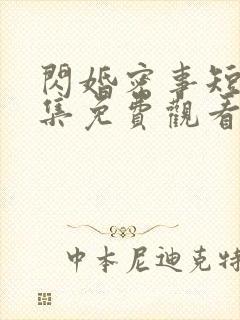 閃婚密事短
集免費觀看
中本尼迪克特